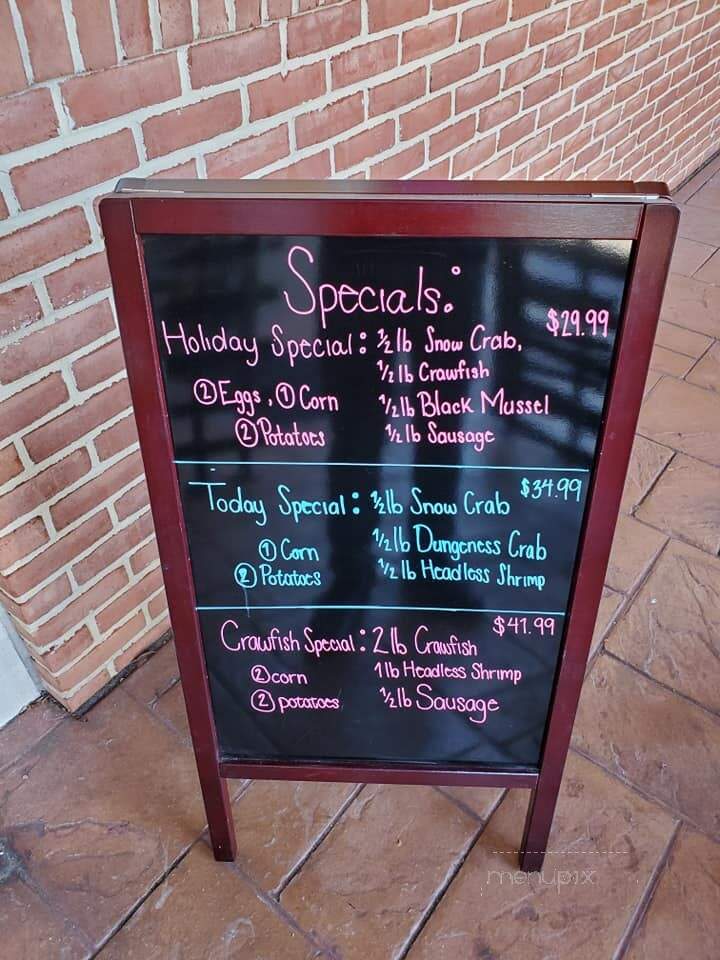 Specials:
Holiday Special: 1/2 lb Snow Crab, $29.99
1/2 lb Crawfish
② Eggs, ① Corn 1/2 lb Black Mussel
② Potatoes 1/2 lb Sausage
Today Special: 1/2 lb Snow Crab $34.99
① Corn 1/2 lb Dungeness Crab
② Potatoes 1/2 lb Headless Shrimp
Crawfish Special: 2 lb Crawfish $41.99
② corn 1 lb Headless Shrimp
② potatoes 1/2 lb Sausage
menupix